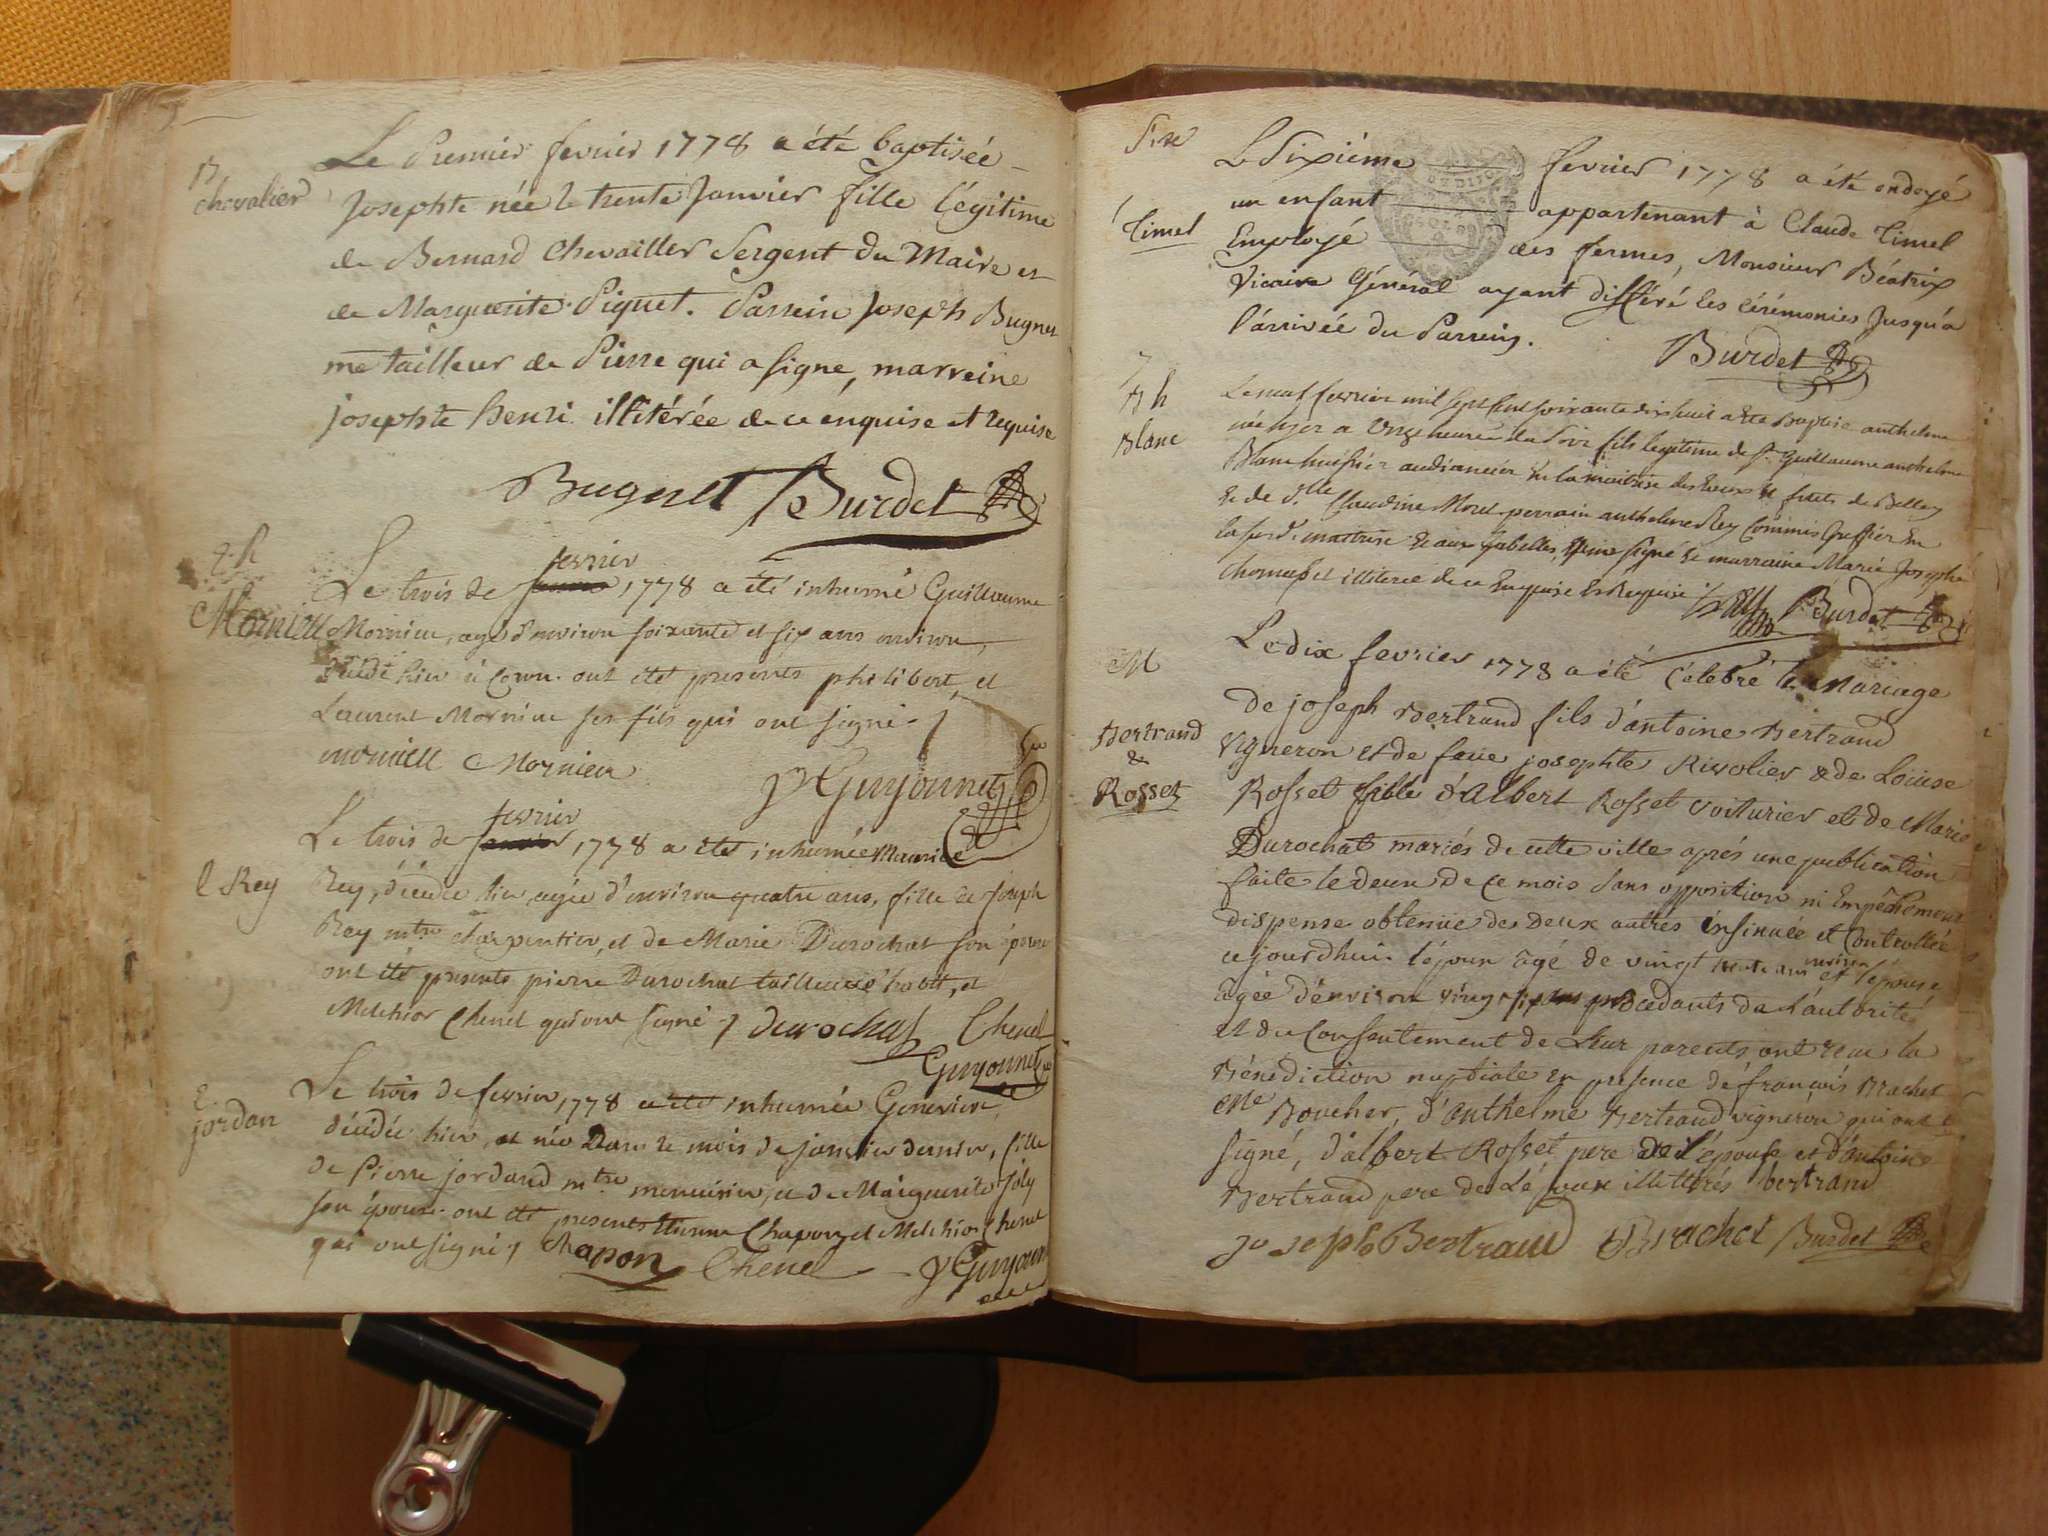 B
chevalier
Le Premier fevrier 1778 a été baptisée
Josephte née le trente Janvier fille légitime
de Bernard Chevailler Sergent du Maire et
de Marguerite Piquet. Parrein Joseph Bugnet
me tailleur de Pierre qui a signé, marreine
josephte henri illitérée de ce enquise et requise
Bugnet Burdet
Mornieu
fevrier
Le trois de 1778 a été inhumé Guillaume
Mornieu, agé d'environ soixante et six ans environ,
décédé hier à ont été presents philibert, et
Laurent Mornieu ses fils qui ont signé.
mornieu Mornieu
Guyonnet
fevrier
Le trois de 1778 a été inhumée
Rey
Rey, décédée hier, agée d'environ quatre ans, fille de joseph
Rey mtre charpentier, et de Marie Durochat son épouse
ont été presents pierre Durochat tailleur d'habit, et
Melchior Chenel qui ont signé. durochat Chenel
Guyonnet
jordan
Le trois de fevrier 1778 a été inhumée Genevieve
décédée hier, et née Dans le mois de janvier dernier, fille
de Pierre jordand mtre menuisier, et de Marguerite joly
son épouse. ont été presents Etienne Chapon, et Melchior Chenel
qui ont signé, chapon Chenel Guyonnet
Timel
Le Sixième fevrier 1778 a été ondoyé
un enfant appartenant à Claude Timel
Employé des fermes, Monsieur Béatrix
Vicaire Général ayant différé les cérémonies Jusqu'à
l'arrivée du Parrein.
Burdet
Blanc
Le neuf fevrier mil sept cent soixante dix huit a été Baptisé anthelme
né hier a Onze heures du Soir fils legitime de Sr Guillaume anthelme
Blanc huissier audiancier en la maitrise des Eaux et forets de Belley
et de dlle Claudine Morel. perrain anthelme Rey Commis Greffier en
la susd. maitrise et aux gabelles, signé et marraine Marie Josephe
illiterée de ce Enquise et Requise Burdet
M
Bertrand
&
Rosset
Le dix fevrier 1778 a été Célébré le Mariage
de joseph Bertrand fils d'antoine Bertrand
vigneron et de feüe josephte Rivolier & de Loüise
Rosset fille d'Albert Rosset voiturier et de Marie
Durochat mariés de cette ville après une publication
faite le deux de ce mois sans opposition ni Empêchement
dispense obtenüe des deux autres insinuée et Controllée
cejourdhui. l'époux âgé de vingt et l'épouse
agée d'environ vingt procedants de l'autorité
et du Consentement de leur parents ont reçu la
Bénédiction nuptiale en presence de françois Brachet
me Boucher, d'anthelme Bertrand vigneron qui ont
signé, d'albert Rosset pere de l'épouse et d'antoine
Bertrand pere de l'époux illittérés bertrand
joseph Bertrand Brachet Burdet